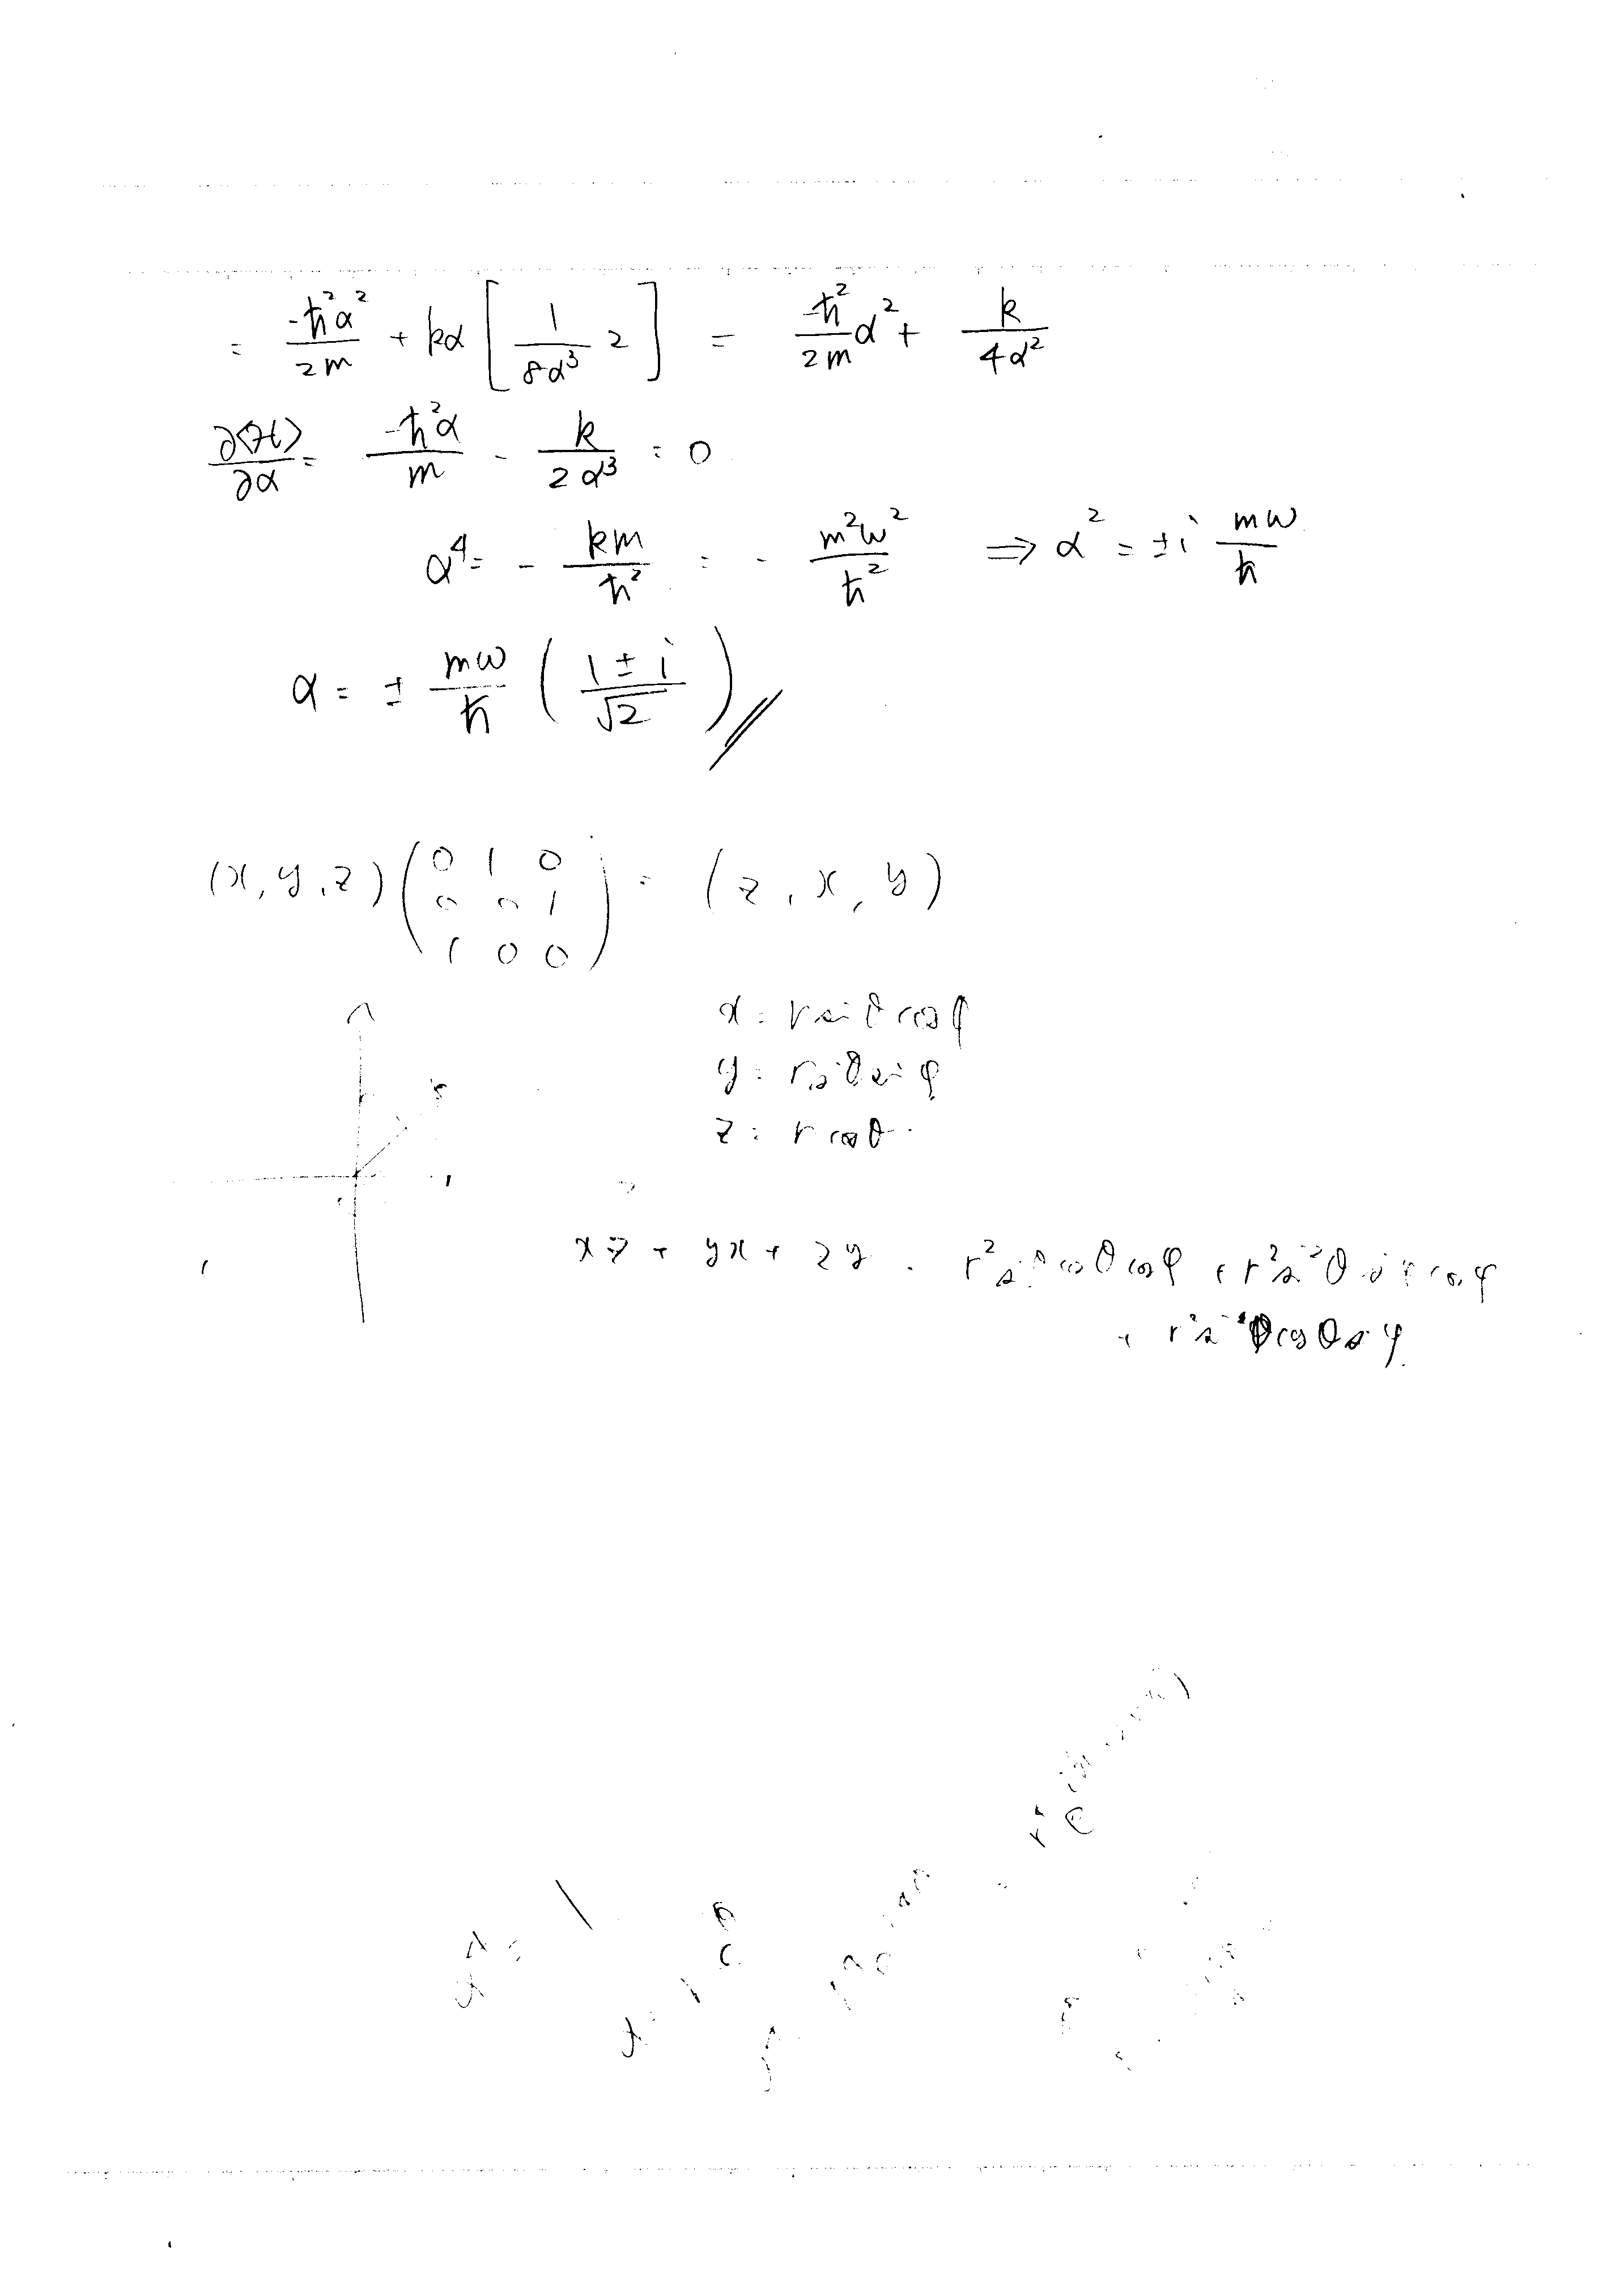 = -ħ²α²/2m + kα [ 1/8α³ 2 ] = -ħ²/2m α² + k/4α²
∂⟨H⟩/∂α = -ħ²α/m - k/2α³ = 0
α⁴ = - km/ħ² = - m²ω²/ħ² ⇒ α² = ±i mω/ħ
α = ± mω/ħ ( 1 ± i / √2 )
(x, y, z) ( 0 1 0
0 0 1
1 0 0 ) = (z, x, y)
x = r sin θ cos φ
y = r sin θ sin φ
z = r cos θ
xz + yx + zy = r² sin θ cos θ cos φ + r² sin² θ sin φ cos φ
+ r² sin θ cos θ sin φ